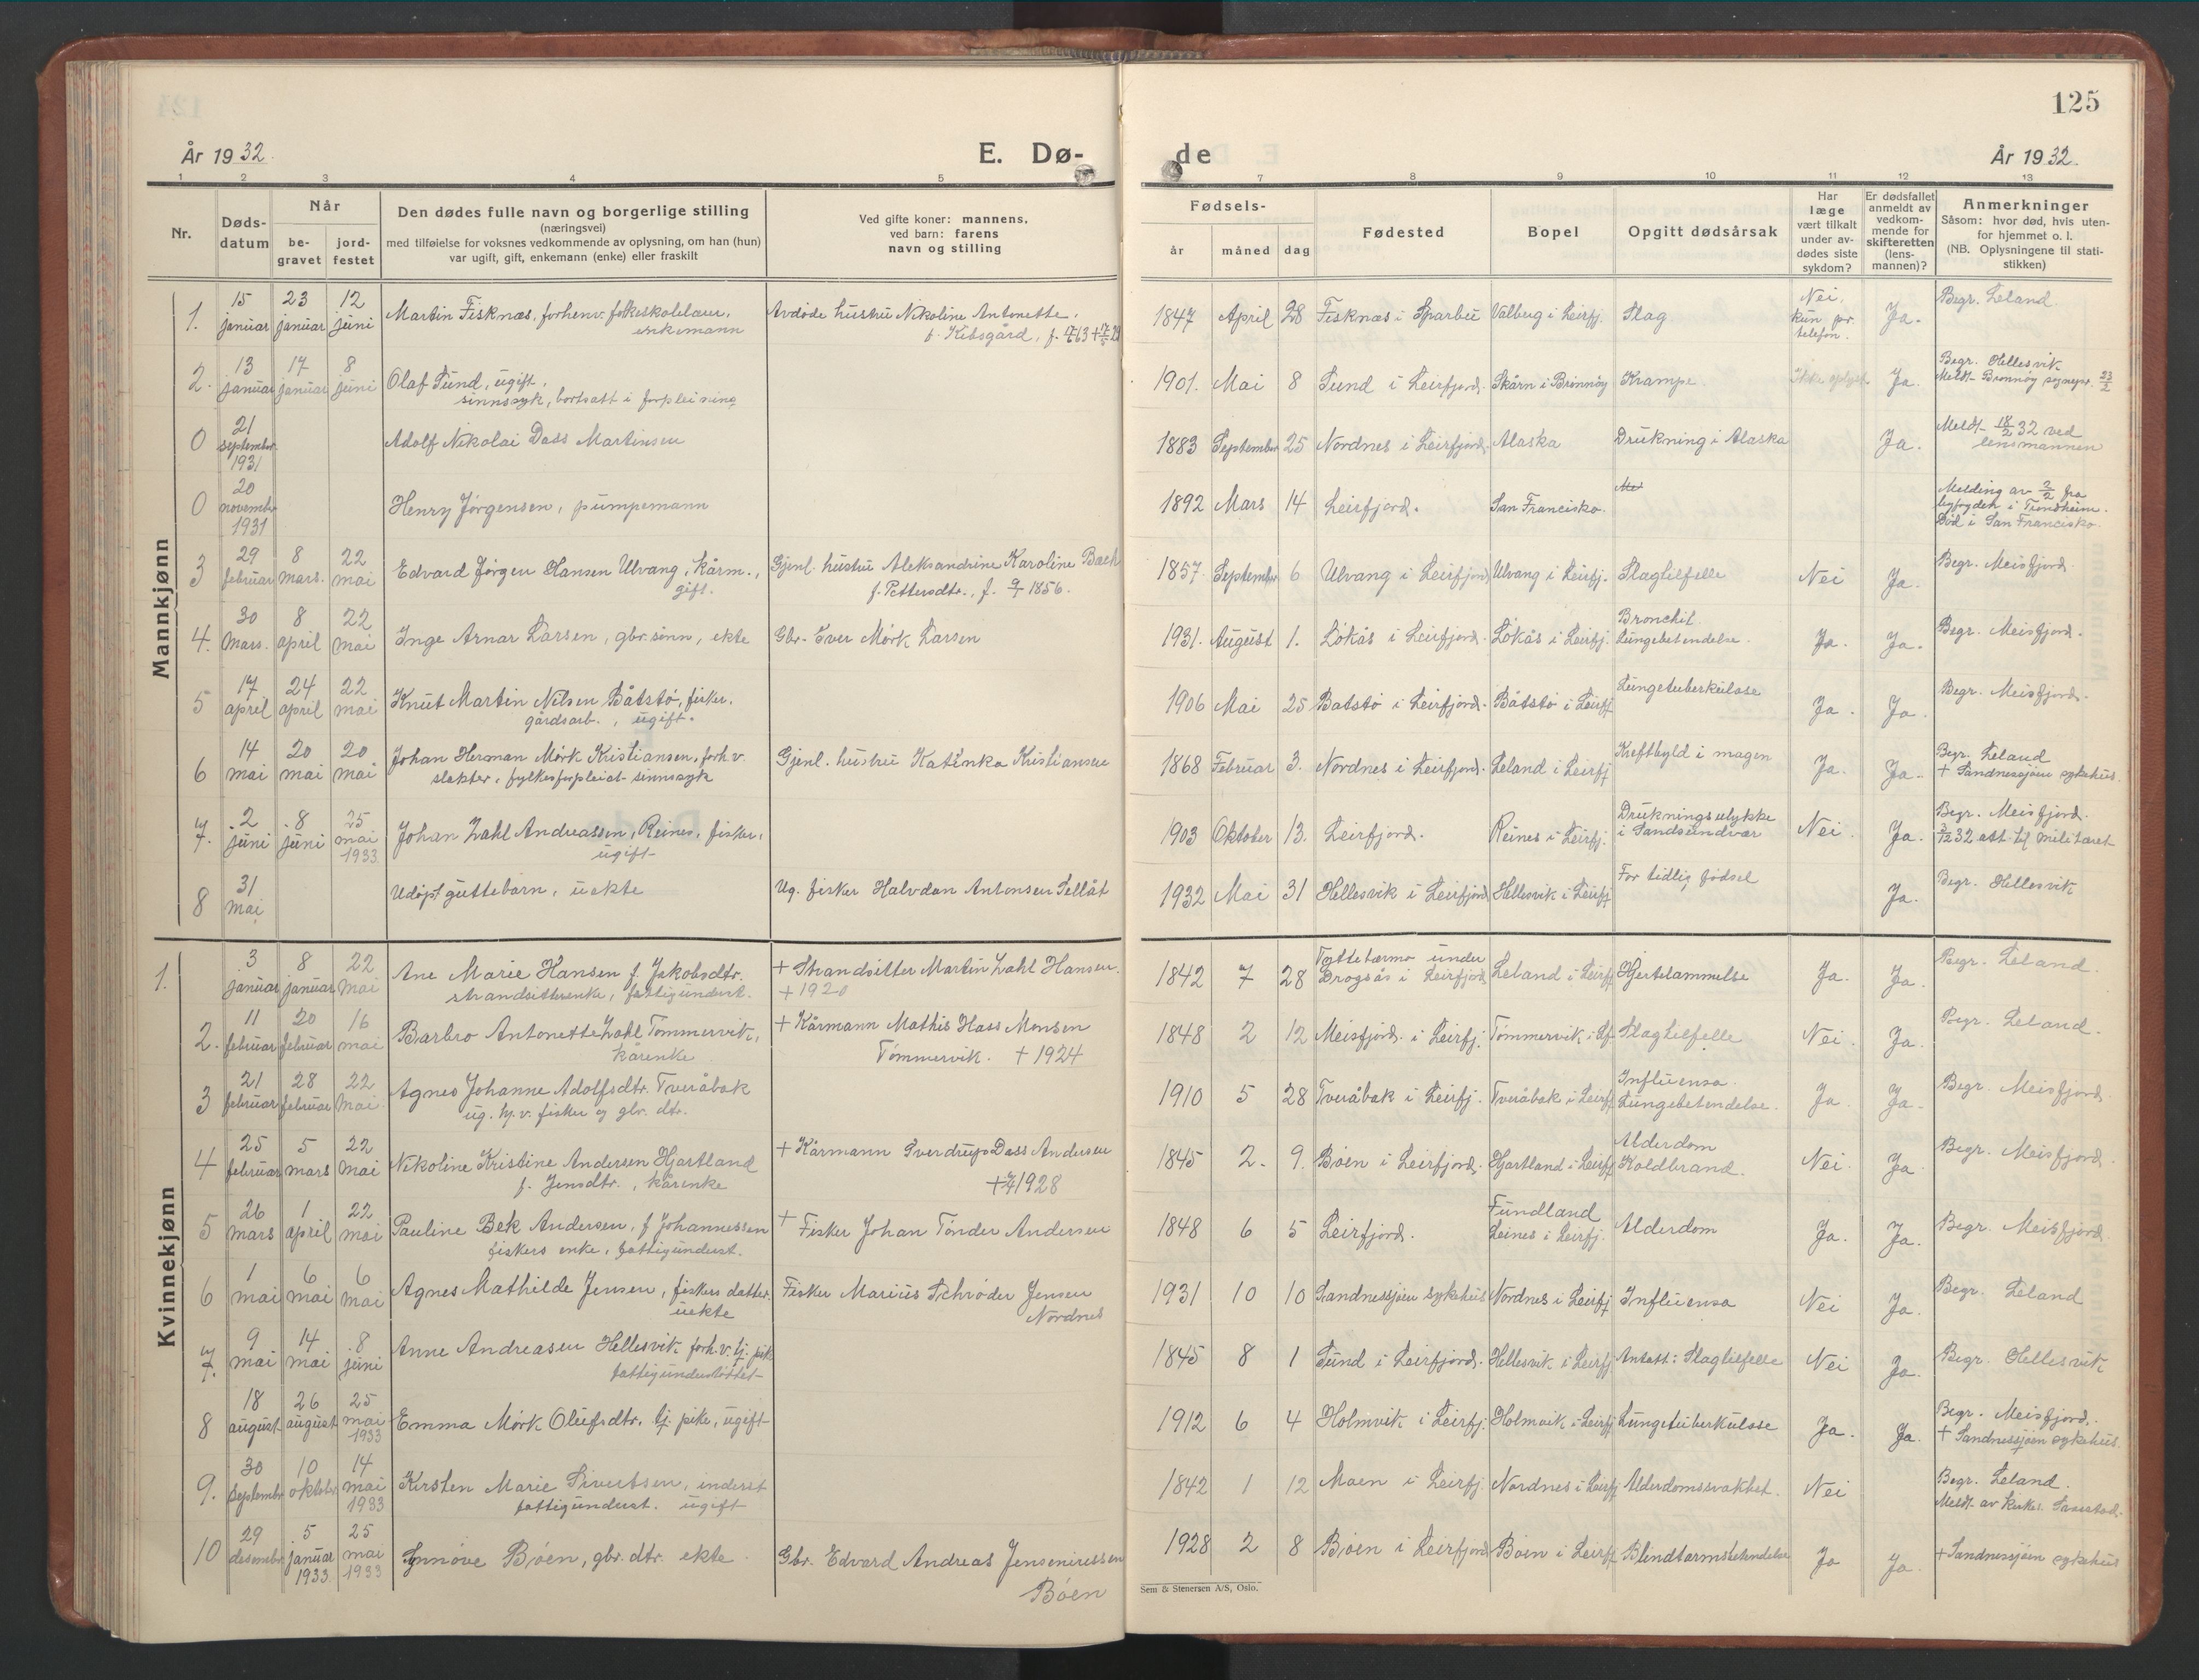 125
År 1932.
E. Dø-
de
År 1932.
1 2 3 4 5 7 8 9 10 11 12 13
Nr.
Døds-
datum
Når
be-
gravet
jord-
festet
Den dødes fulle navn og borgerlige stilling
(næringsvei)
med tilføielse for voksnes vedkommende av oplysning, om han (hun)
var ugift, gift, enkemann (enke) eller fraskilt
Ved gifte koner: mannens,
ved barn: farens
navn og stilling
Fødsels-
år måned dag
Fødested
Bopel
Opgitt dødsårsak
Har
læge
vært tilkalt
under av-
dødes siste
sykdom?
Er dødsfallet
anmeldt av
vedkom-
mende for
skifteretten
(lens-
mannen)?
Anmerkninger
Såsom: hvor død, hvis uten-
for hjemmet o. l.
(NB. Oplysningene til stati-
stikken)
Mannkjønn
1. 15 januar 23 januar 12 juni Martin Fisknæs, forhenv. folkeskolelærer, enkemann Avdøde hustru Nikoline Antonette, f. Kibsgård, 1847 April 28 Fisknæs i Sparbu Valberg i Leirfj. Slag Nei, kun pr. telefon. Ja. Begr. Leland
2. 13 januar 17 januar 8 juni Olaf Sund, ugift, sinnssyk, bortsatt i forpleining 1901. Mai 8 Sund i Leirfjord. Skårn i Brønnøy Krampe Ikke oplyst Ja. Begr. Hellesvik Meldt Brønnøy sognepr. 23/2
0 21 september 1931 Adolf Nikolai Dass Martinsen 1883 September 25 Nordnes i Leirfjord. Alaska Drukning i Alaska Ja. Meldt 18/2 32 ved lensmannen
0 20 novembr 1931 Henry Jørgensen, pumpemann 1892 Mars 14 Leirfjord. San Francisko. Melding av 2/2 fra byfogden i Trondheim. Død i San Francisko.
3 29 februar 8 mars. 22 mai Edvard Jørgen Hansen Ulvang, kårm., gift. Gjenl. hustru Aleksandrine Karoline Bach f. Pettersdtr., f. 1856. 1857 September 6 Ulvang i Leirfjord Ulvang i Leirfj. Slagtilfelle Nei Ja. Begr. Meisfjord.
4. 30 mars. 8 april 22 mai Inge Arnar Larsen, gbr. sønn, ekte Gbr. Iver Mørk Larsen 1931. August 1. Løkås i Leirfjord. Løkås i Leirfj. Bronchit. Lungebetendelse. Ja. Ja. Begr. Meisfjord.
5 17 april 24 april 22 mai Knut Martin Nilsen Båtstø, fisker, gårdsarb., ugift. 1906 Mai 25 Båtstø i Leirfjord. Båtstø i Leirfj Lungetuberkulose Ja. Ja. Begr. Meisfjord.
6 14 mai 20 mai 20 mai Johan Herman Mørk Kristiansen, forh.v. slakter, fylkesforpleiet sinnssyk Gjenl. hustru Katinka Kristiansen 1868 Februar 3. Nordnes i Leirfjord. Leland i Leirfj Kreftbyld i magen Ja. Ja. Begr. Leland + Sandnessjøen sykehus.
7. 2 juni 8 juni 25 mai 1933 Johan Zahl Andreassen, Reines, fisker, ugift 1903 Oktober 13. Leirfjord. Reines i Leirfj. Drukningsulykke i Sandsundvær Nei. Ja. Begr. Meisfjord. 3/12 32 att. til militæret
8 31 mai Udøpt guttebarn, uekte Ug. fisker Halvdan Antonsen Sellät 1932 Mai 31 Hellesvik i Leirfjord Hellesvik i Leirfj For tidlig fødsel Ja. Begr. Hellesvik
Kvinnekjønn
1. 3 januar 8 januar 22 mai Ane Marie Hansen f. Jakobsdtr. strandsitterenke, fattigunderst. + Strandsitter Martin Zahl Hansen. + 1920 1842 7 28 under Drogsås i Leirfjord Leland i Leirfj Hjertelammelse Ja. Ja. Begr. Leland.
2. 11 februar 20 februar 16 mai Barbro Antonette Zahl Tømmervik, kårenke + Kårmann Mathis Hass Monsen Tømmervik. + 1924 1848 2 12 Meisfjord. i Leirfj. Tømmervik i Lf Slagtilfelle Nei. Ja. Begr. Leland.
3 21 februar 28 februar 22 mai Agnes Johanne Adolfsdtr. Tveråbak ug. hj.v. fisker og gbr. dtr. 1910 5 28 Tveråbak i Leirfj. Tveråbak i Leirfj Influensa. Lungebetendelse. Ja. Ja. Begr. Meisfjord.
4 25 februar 5 mars 22 mai Nikoline Kristine Andersen Hjartland f. Jensdtr., kårenke + Kårmann Sverdrup Dass Andersen + 1928 1845 2. 9. Bøen i Leirfjord. Hjartland i Leirfj Alderdom Koldbrand. Nei. Ja. Begr. Meisfjord.
5 26 mars 1 april 22 mai Pauline Bek Andersen, f Johannessen fiskers enke, fattigunderst. + Fisker Johan Tønder Andersen 1848 6 5 Leirfjord. Fundland Leines i Leirfj. Alderdom Ja. Ja. Begr. Meisfjord.
6 1 mai 6 mai 6 mai Agnes Mathilde Jensen, fiskers datter. uekte Fisker Marius Schrøder Jensen Nordnes 1931 10 10 Sandnessjøen sykehus Nordnes i Leirfj Influensa Nei Ja. Begr. Leland
7. 9 mai 14 mai 8 juni Anne Andreasen Hellesvik forh.v. tj. pik fattigunderstøttet 1845 8 1 Sund i Leirfjord. Hellesvik i Leirfj Antatt: Slagtilfelle Nei Ja. Begr. Hellesvik
8 18 august 26 august 25 mai 1933 Emma Mørk Olufsdtr. tj. pike, ugift 1912 6 4 Holmvik i Leirfj. Holmvik i Leirfj Lungetuberkulose Ja. Ja. Begr. Meisfjord. + Sandnessjøen sykehus.
9. 30 septembr 10 oktobr 14 mai 1933 Kirsten Marie Sivertsen, inderst fattigunderst. ugift 1842 1 12 Moen i Leirfj. Nordnes i Leirfj Alderdomssvakhet. Nei Begr. Leland. Meldt av kirkes.
10 29 desembr 5 januar 1933. 25 mai 1933 Synnøve Bøen, gbr. dtr. ekte. Gbr. Edvard Andreas Bøen 1928 2 8 Bøen i Leirfjord Bøen i Leirfj Blindtarmsbetendelse Ja Ja. + Sandnessjøen sykehus
Sem & Stenersen A/S, Oslo.